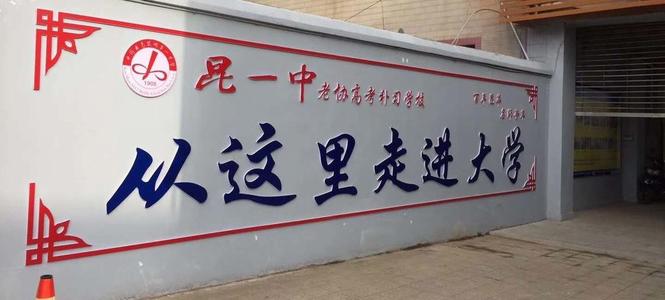 昆一中老协高考补习学校
从这里走进大学
1905